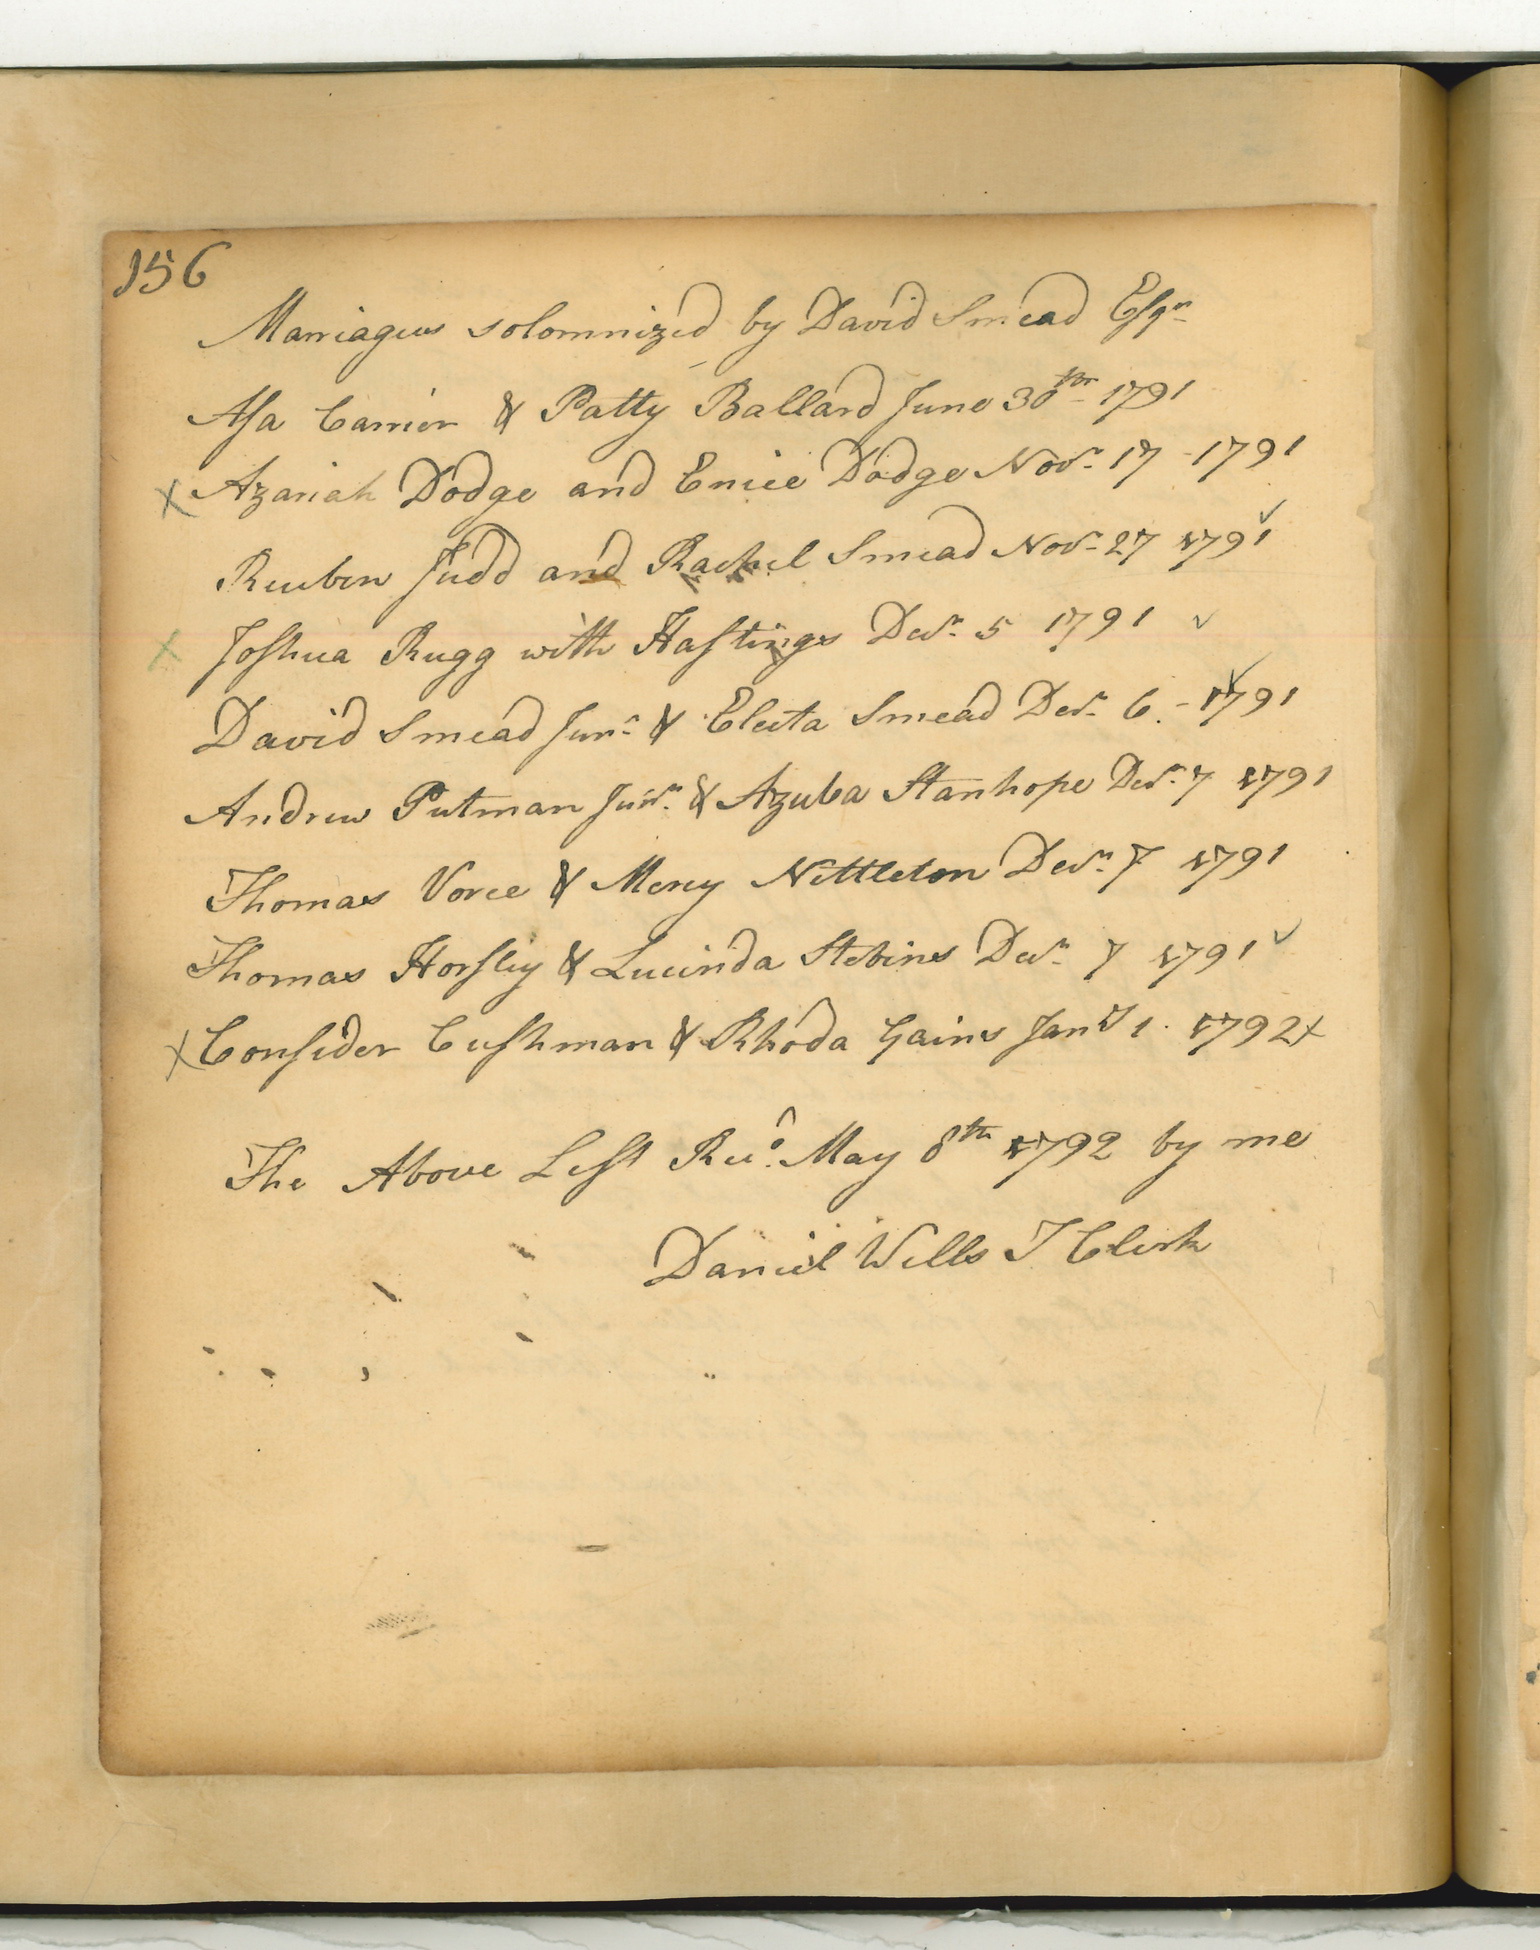 156
Marriages solomnized by David Smead Esqr
Asa Carrier & Patty Ballard June 30th 1791
x Azariah Dodge and Enice Dodge Novr 17 - 1791
Reuben Judd and Rachel Smead Novr 27 1791 ✓
x Joshua Rugg with Hastings Decr 5 1791 ✓
David Smead Junr & Electa Smead Decr 6. - 1791 ✓
Andrew Putman Junr & Azuba Stanhope Decr 7 1791
Thomas Vorce & Mercy Nettleton Decr 7 1791
Thomas Horsley & Lucinda Stebins Decr 7 1791 ✓
x Consider Cushman & Rhoda Gains Jany 1. 1792 x
The Above List Recd. May 8th 1792 by me
Daniel Wells T Clerk